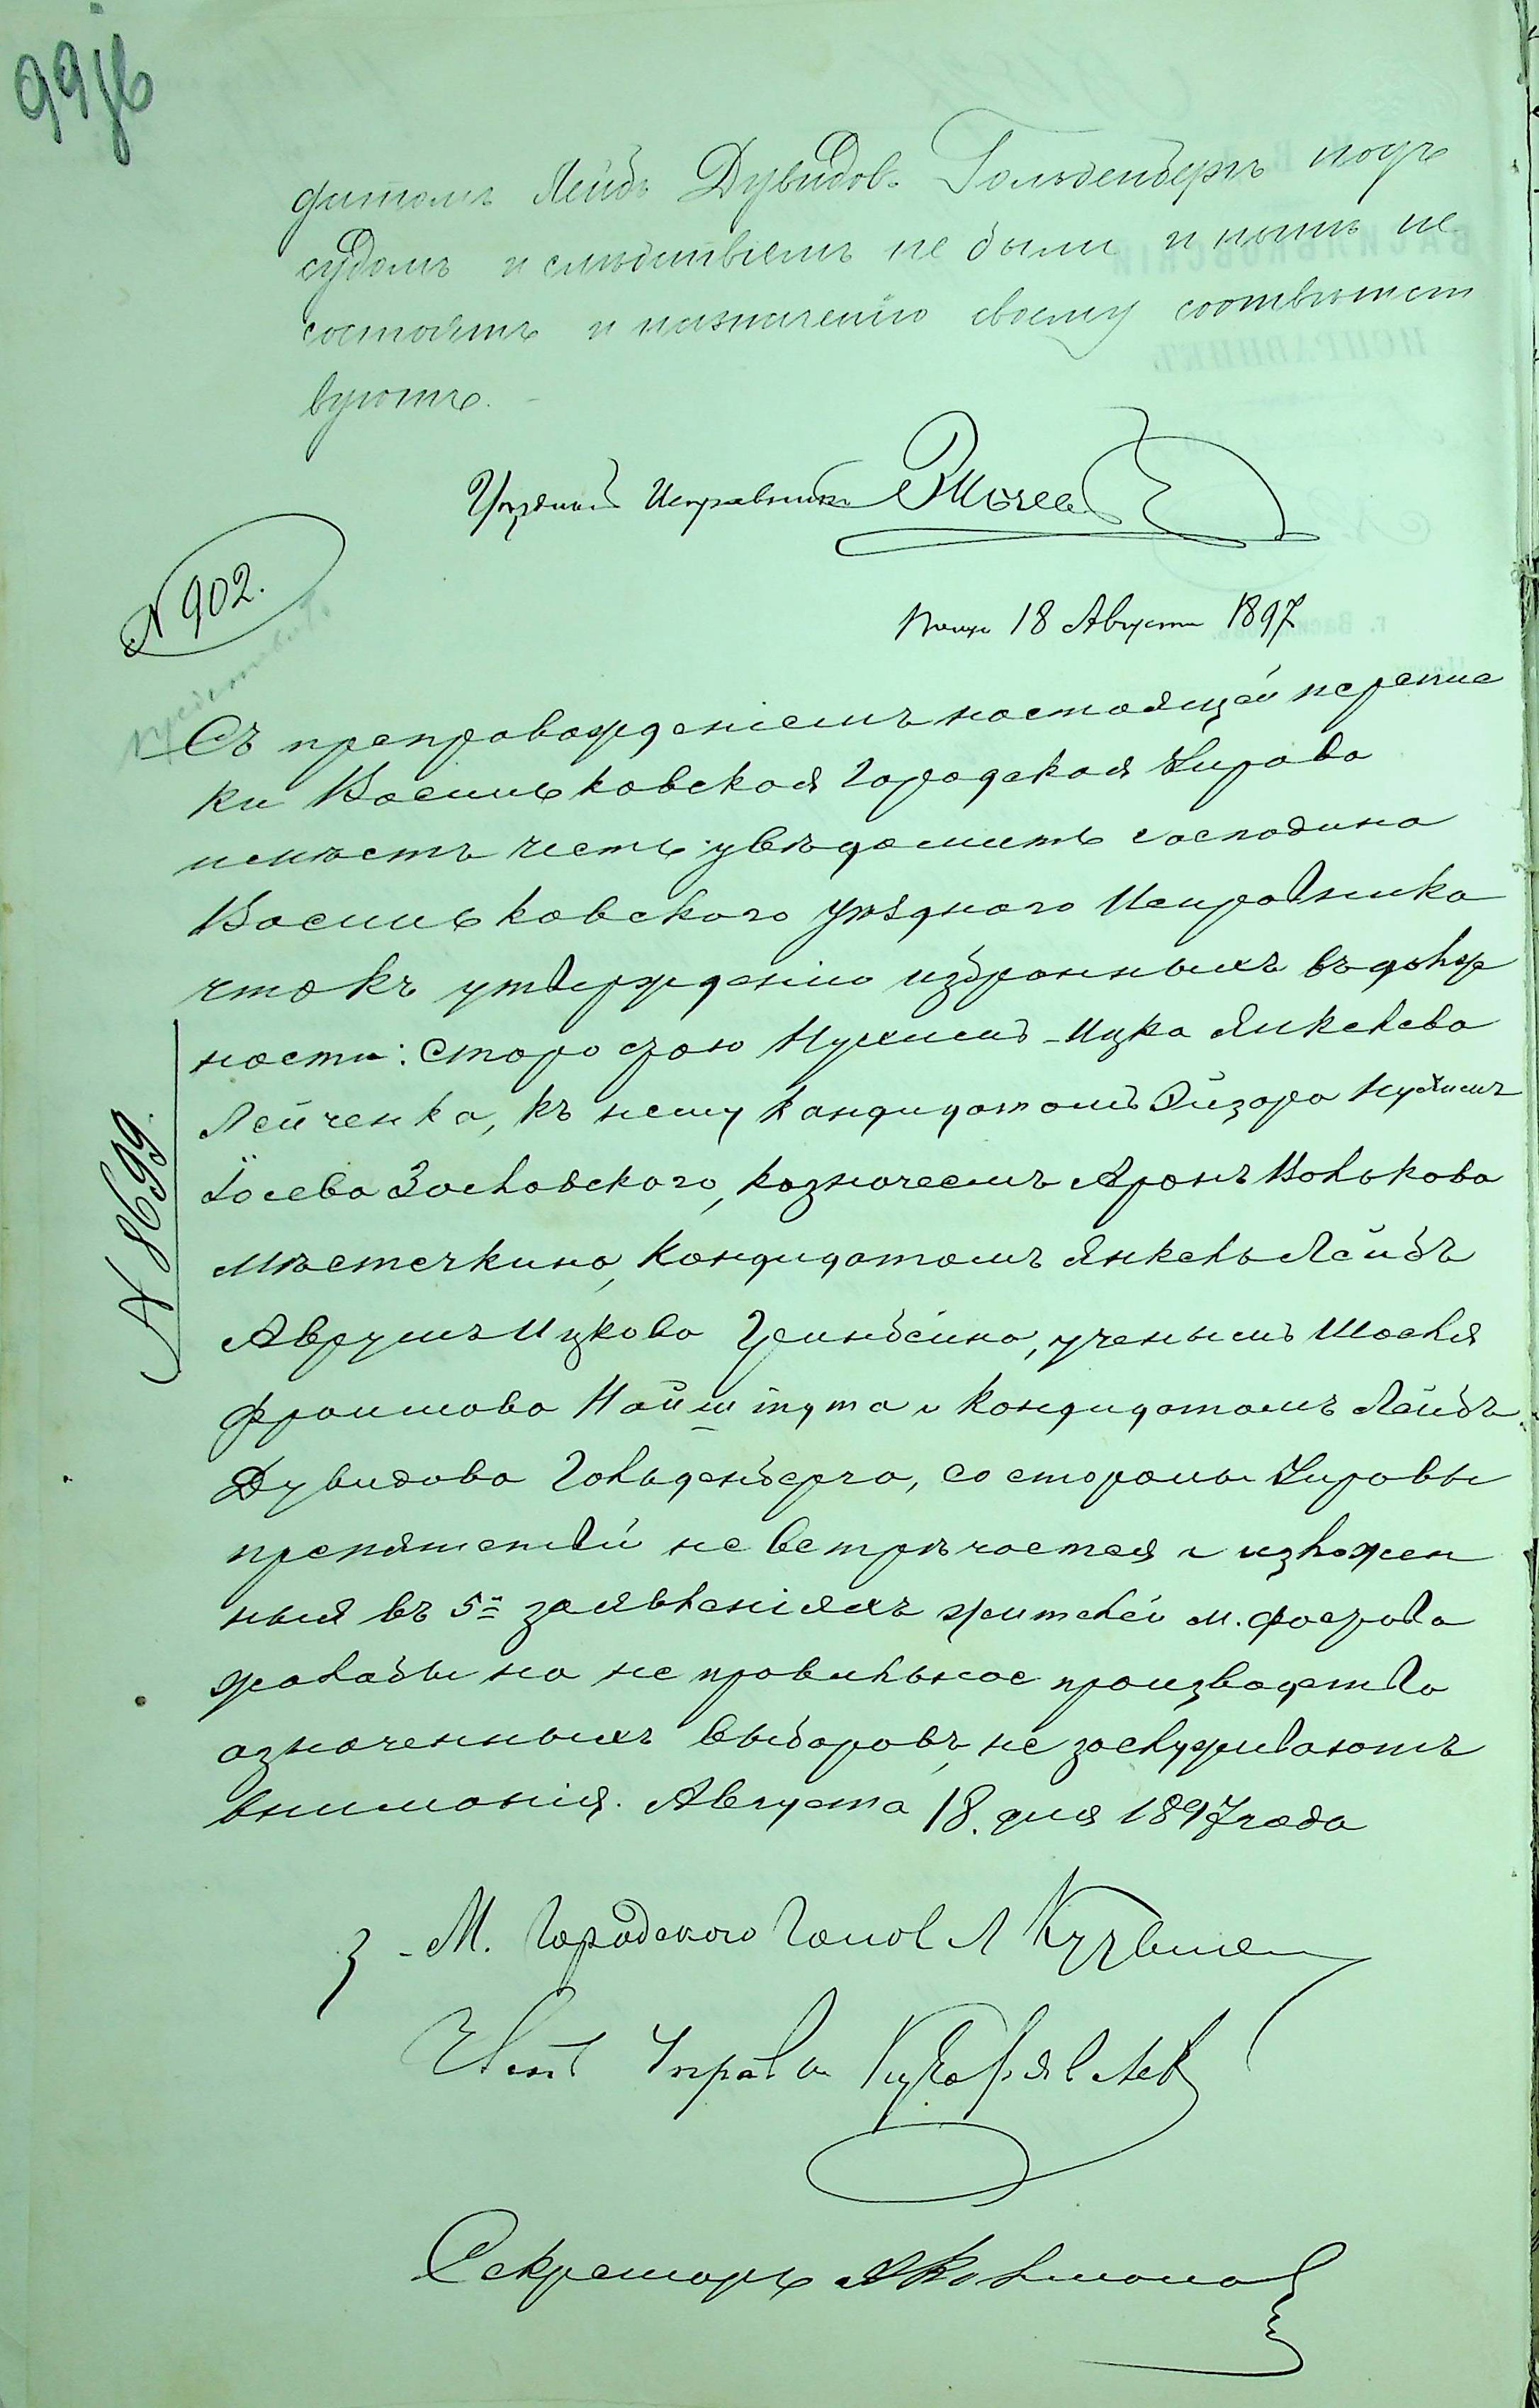 дитомъ Лейбъ Дувидов. Гольденбергъ подъ
судомъ и слѣдствіемъ не были и нынѣ не
состоятъ и назначенію своему соотвѣтст
вуютъ.
Уѣздный Исправникъ
N 902.
18 Августа 1897
Съ препровожденіемъ настоящей перепис
ки Васильковская Городская Управа
имѣетъ честь увѣдомить господина
Васильковского Уѣзднаго Исправника
что къ утвержденію избранныхъ въ долж
ности: Старостою Нухимъ-Ицка Янкелева
Лейченка, къ нему кандидатомъ Эйзора Нухимъ
Іосева Зословского, казначеемъ Аронъ Волькова
Мѣстечкина, Кандидатомъ Янкель Лейбъ
Аврумъ Ицкова Гринбейна, ученымъ Шоеля
Фроимова Найштута и Кандидатомъ Лейбъ
Дувидова Гольденберга, со стороны Управы
препятствій не встрѣчается и изложен
ныя въ 5 заявленіяхъ жителей м. Фастова
жалобы на не правильное производство
означенныхъ выборовъ, не заслуживаютъ
вниманія. Августа 18. дня 1897 года
N 8699.
З. М. Городского Голов
Член Управы
Секретарь